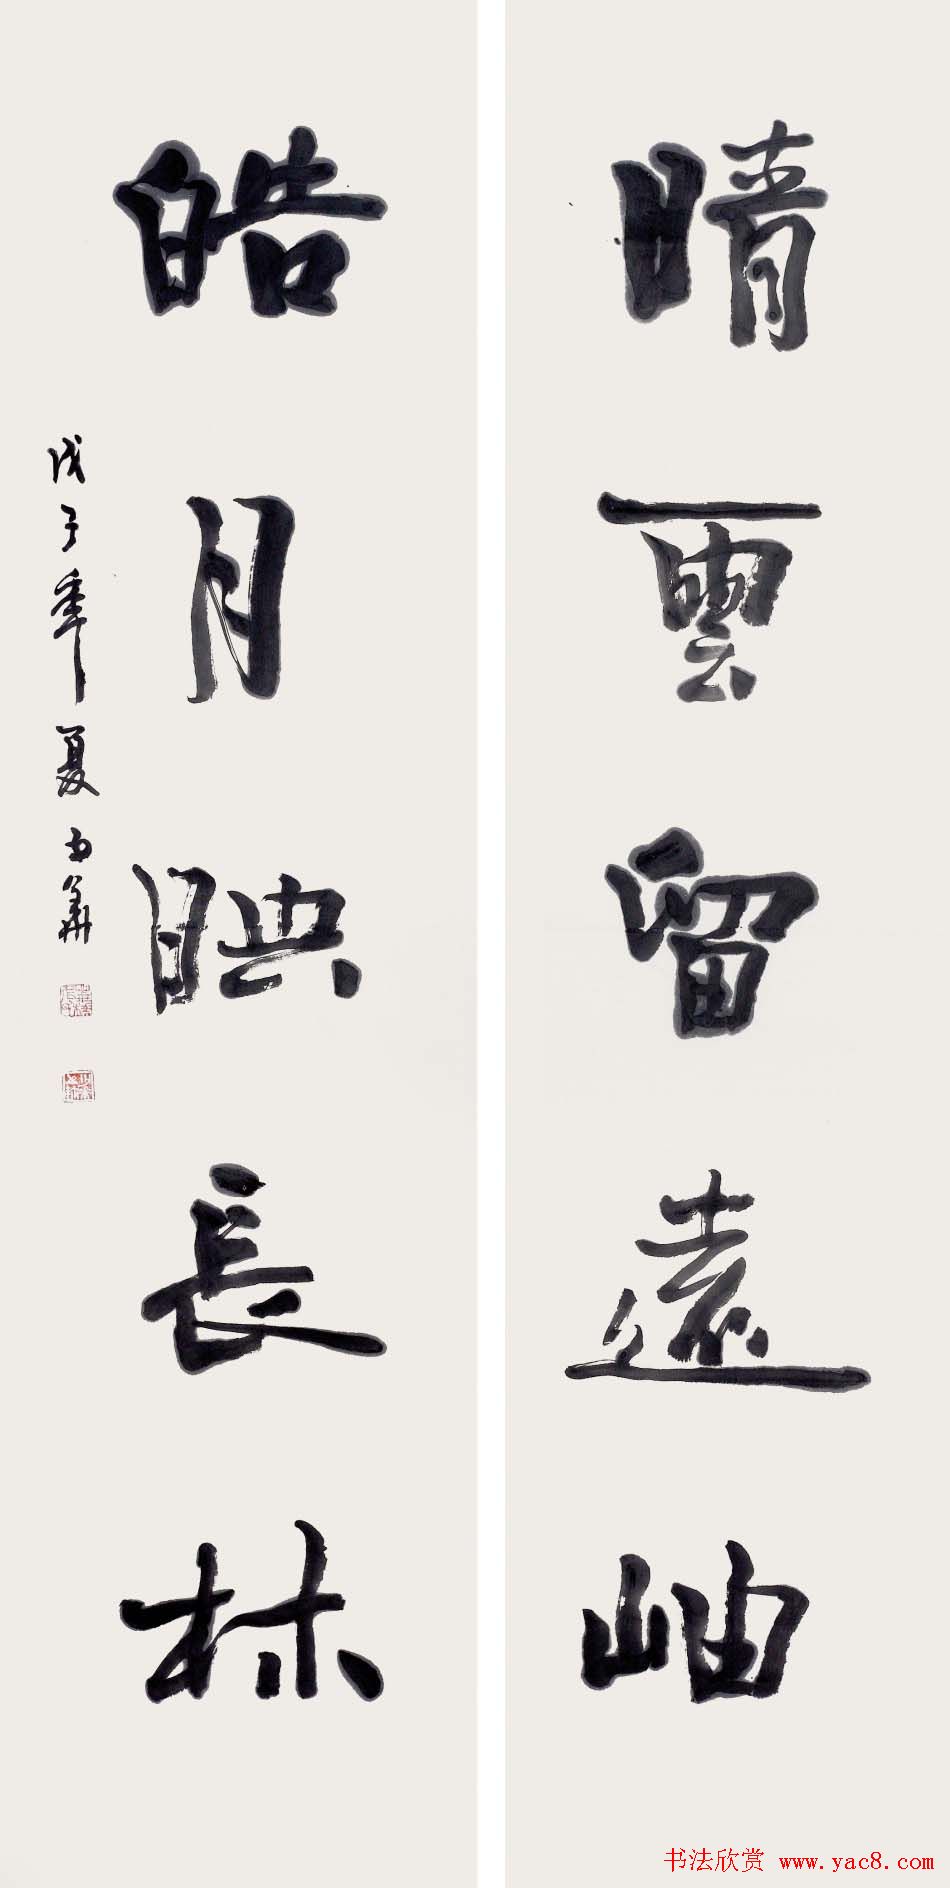 晴雲留遠岫
皓月映長林
戊子年夏
书法欣赏 www.yac8.com